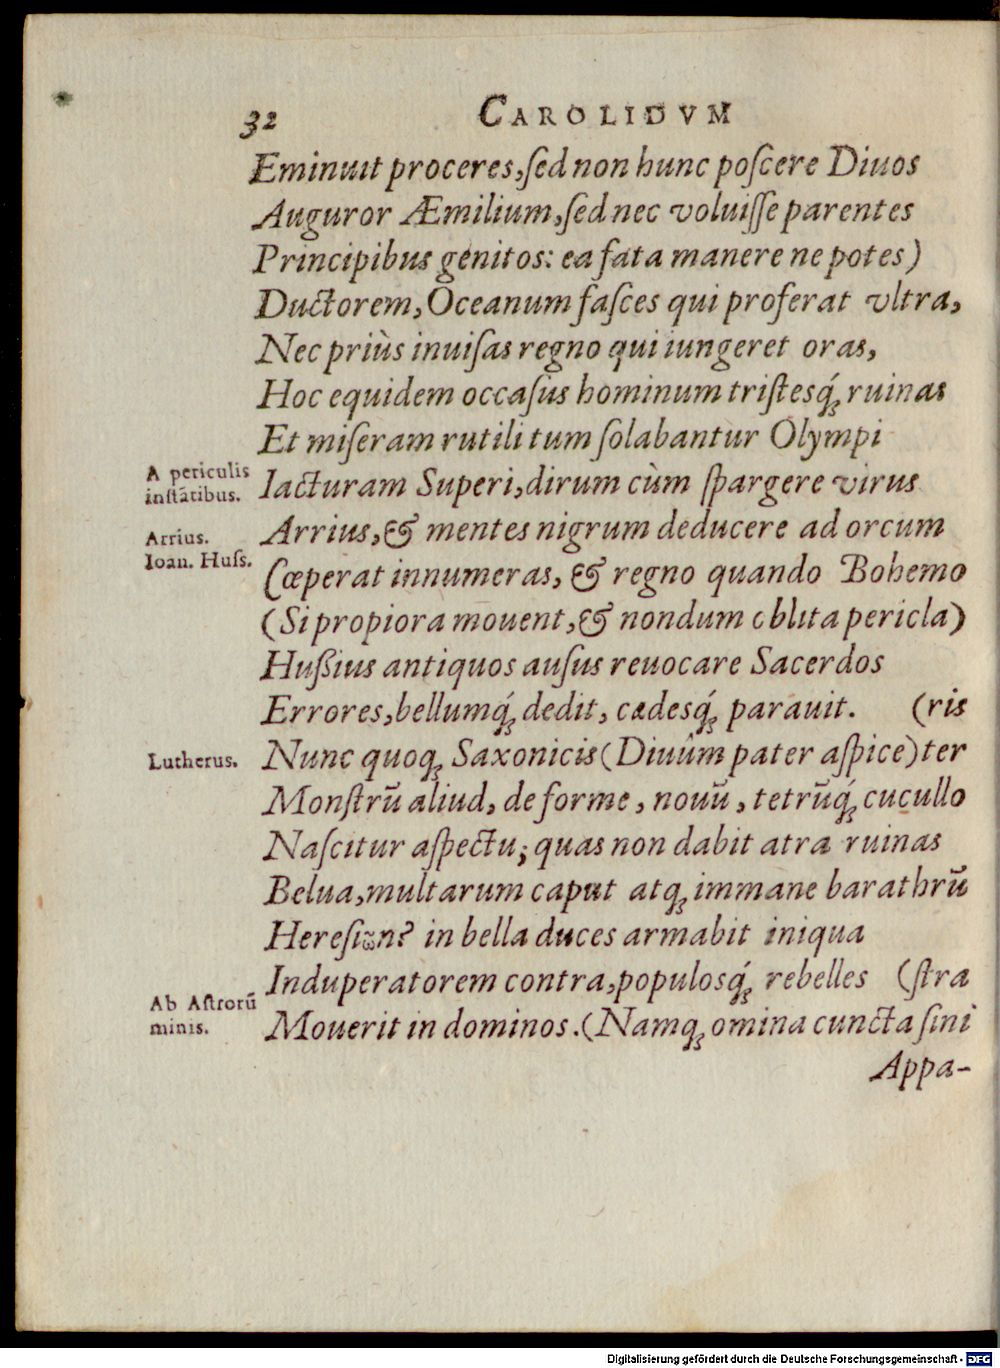 32 CAROLIDVM
Eminuit proceres, ſed non hunc poſcere Diuos
Auguror Æmilium, ſed nec voluiſſe parentes
Principibus genitos: ea fata manere nepotes)
Ductorem, Oceanum faſces qui proferat vltra,
Nec priùs inuiſas regno qui iungeret oras,
Hoc equidem occaſus hominum triſtesq́ꝫ ruinas
Et miſeram rutili tum ſolabantur Olympi
A periculis
inſtātibus.
Iacturam Superi, dirum cùm ſpargere virus
Arrius.
Arrius, & mentes nigrum deducere ad orcum
Ioan. Huſs.
Cœperat innumeras, & regno quando Bohemo
(Si propiora mouent, & nondum oblita pericla)
Hußius antiquos auſus reuocare Sacerdos
Errores, bellumq́ꝫ dedit, cædesq́ꝫ parauit. (ris
Lutherus.
Nunc quoqꝫ Saxonicis (Diuûm pater aſpice) ter
Monſtrū aliud, deforme, nouū, tetrūq́ꝫ cucullo
Naſcitur aſpectu; quas non dabit atra ruinas
Belua, multarum caput atqꝫ immane barathrū
Hereſiωn? in bella duces armabit iniqua
Induperatorem contra, populosq́ꝫ rebelles (ſtra
Ab Aſtrorū
minis.
Mouerit in dominos. (Namqꝫ omina cuncta ſini
Appa-
Digitalisierung gefördert durch die Deutsche Forschungsgemeinschaft - DFG